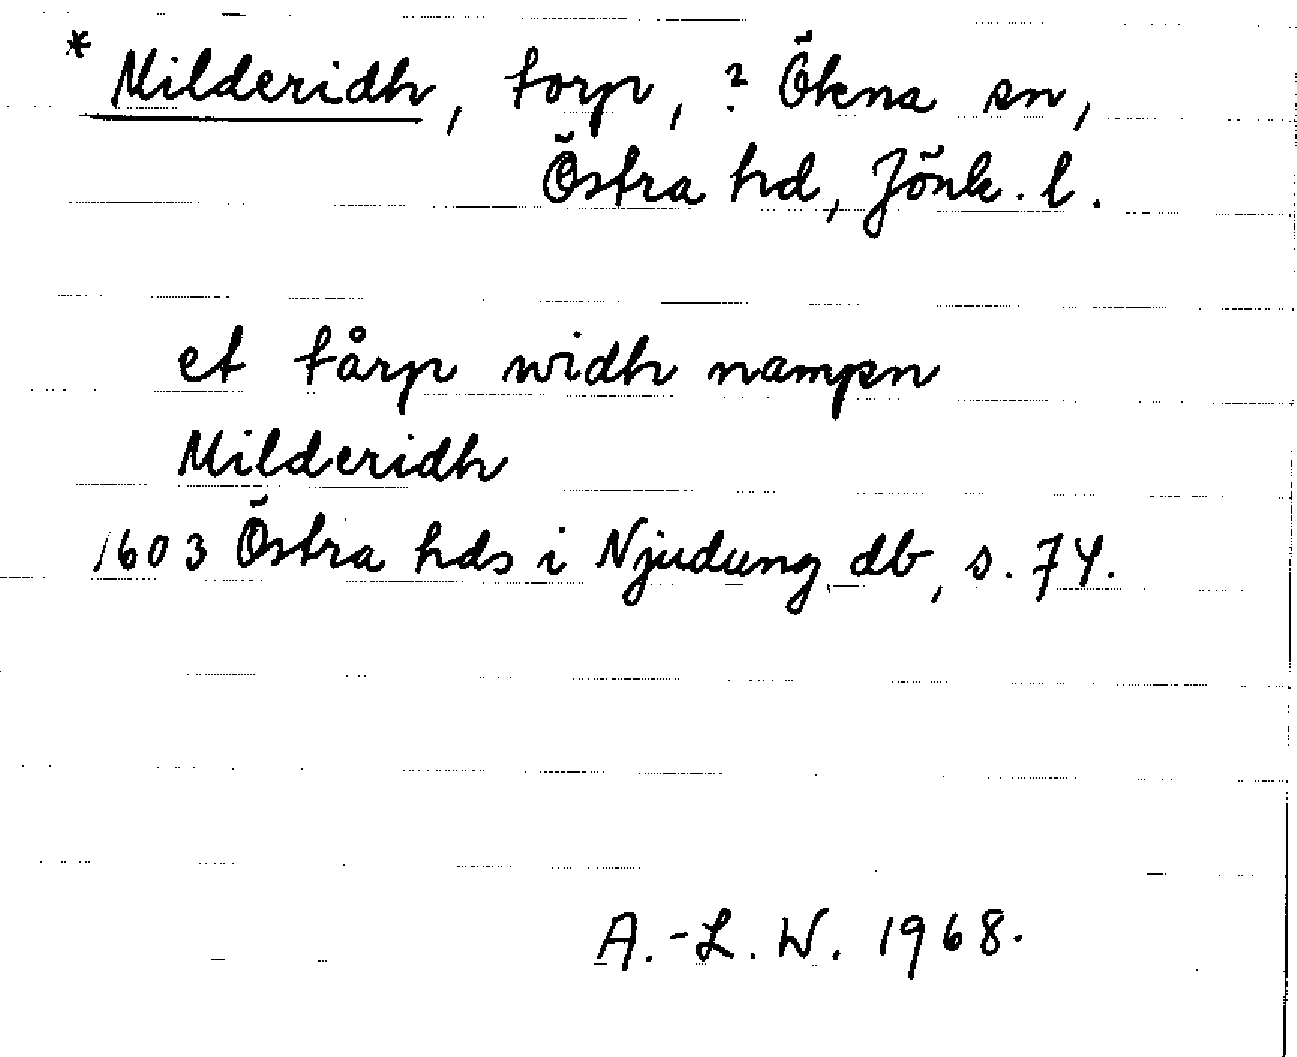 * Milderidh, torp, ? Ökna sn,
Östra hd, Jönk. l.
et tårp widh nampn
Milderidh
1603 Östra hds i Njudung db, s. 74.
A.-L. W. 1968.